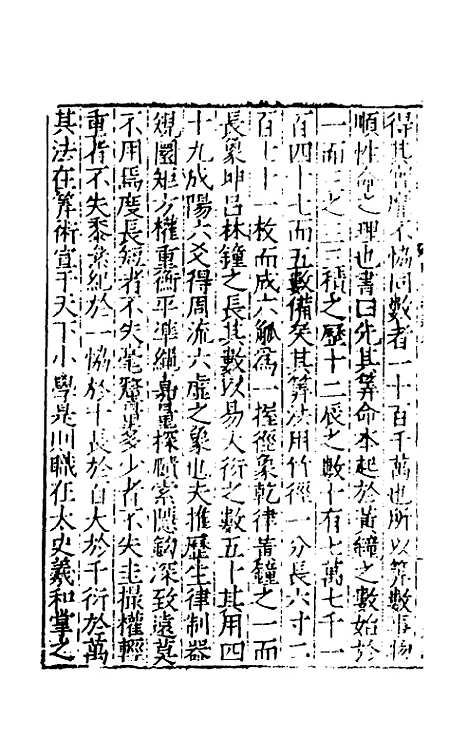 得其實靡不恊同數者一十百千萬也所以筭數事物
順性命之理也書曰先其筭命本起於黃鐘之數始於
一而三之三三積之歷十二辰之數十有七萬七千一
百四十七而五數備矣其筭法用竹徑一分長六寸二
百七十一枚而成六觚爲一握徑象乾律黃鐘之一而
長象坤吕林鐘之長其數以易大衍之數五十其用四
十九成陽六爻得周流六虛之象也夫推歷生律制器
規圜矩方權重衡平準繩嘉量探賾索隱鈎深致遠莫
不用焉度長短者不失毫釐量多少者不失圭撮權輕
重者不失黍絫紀於一恊於十長於百大於千衍於萬
其法在筭術宣于天下小學是則職在太史羲和掌之